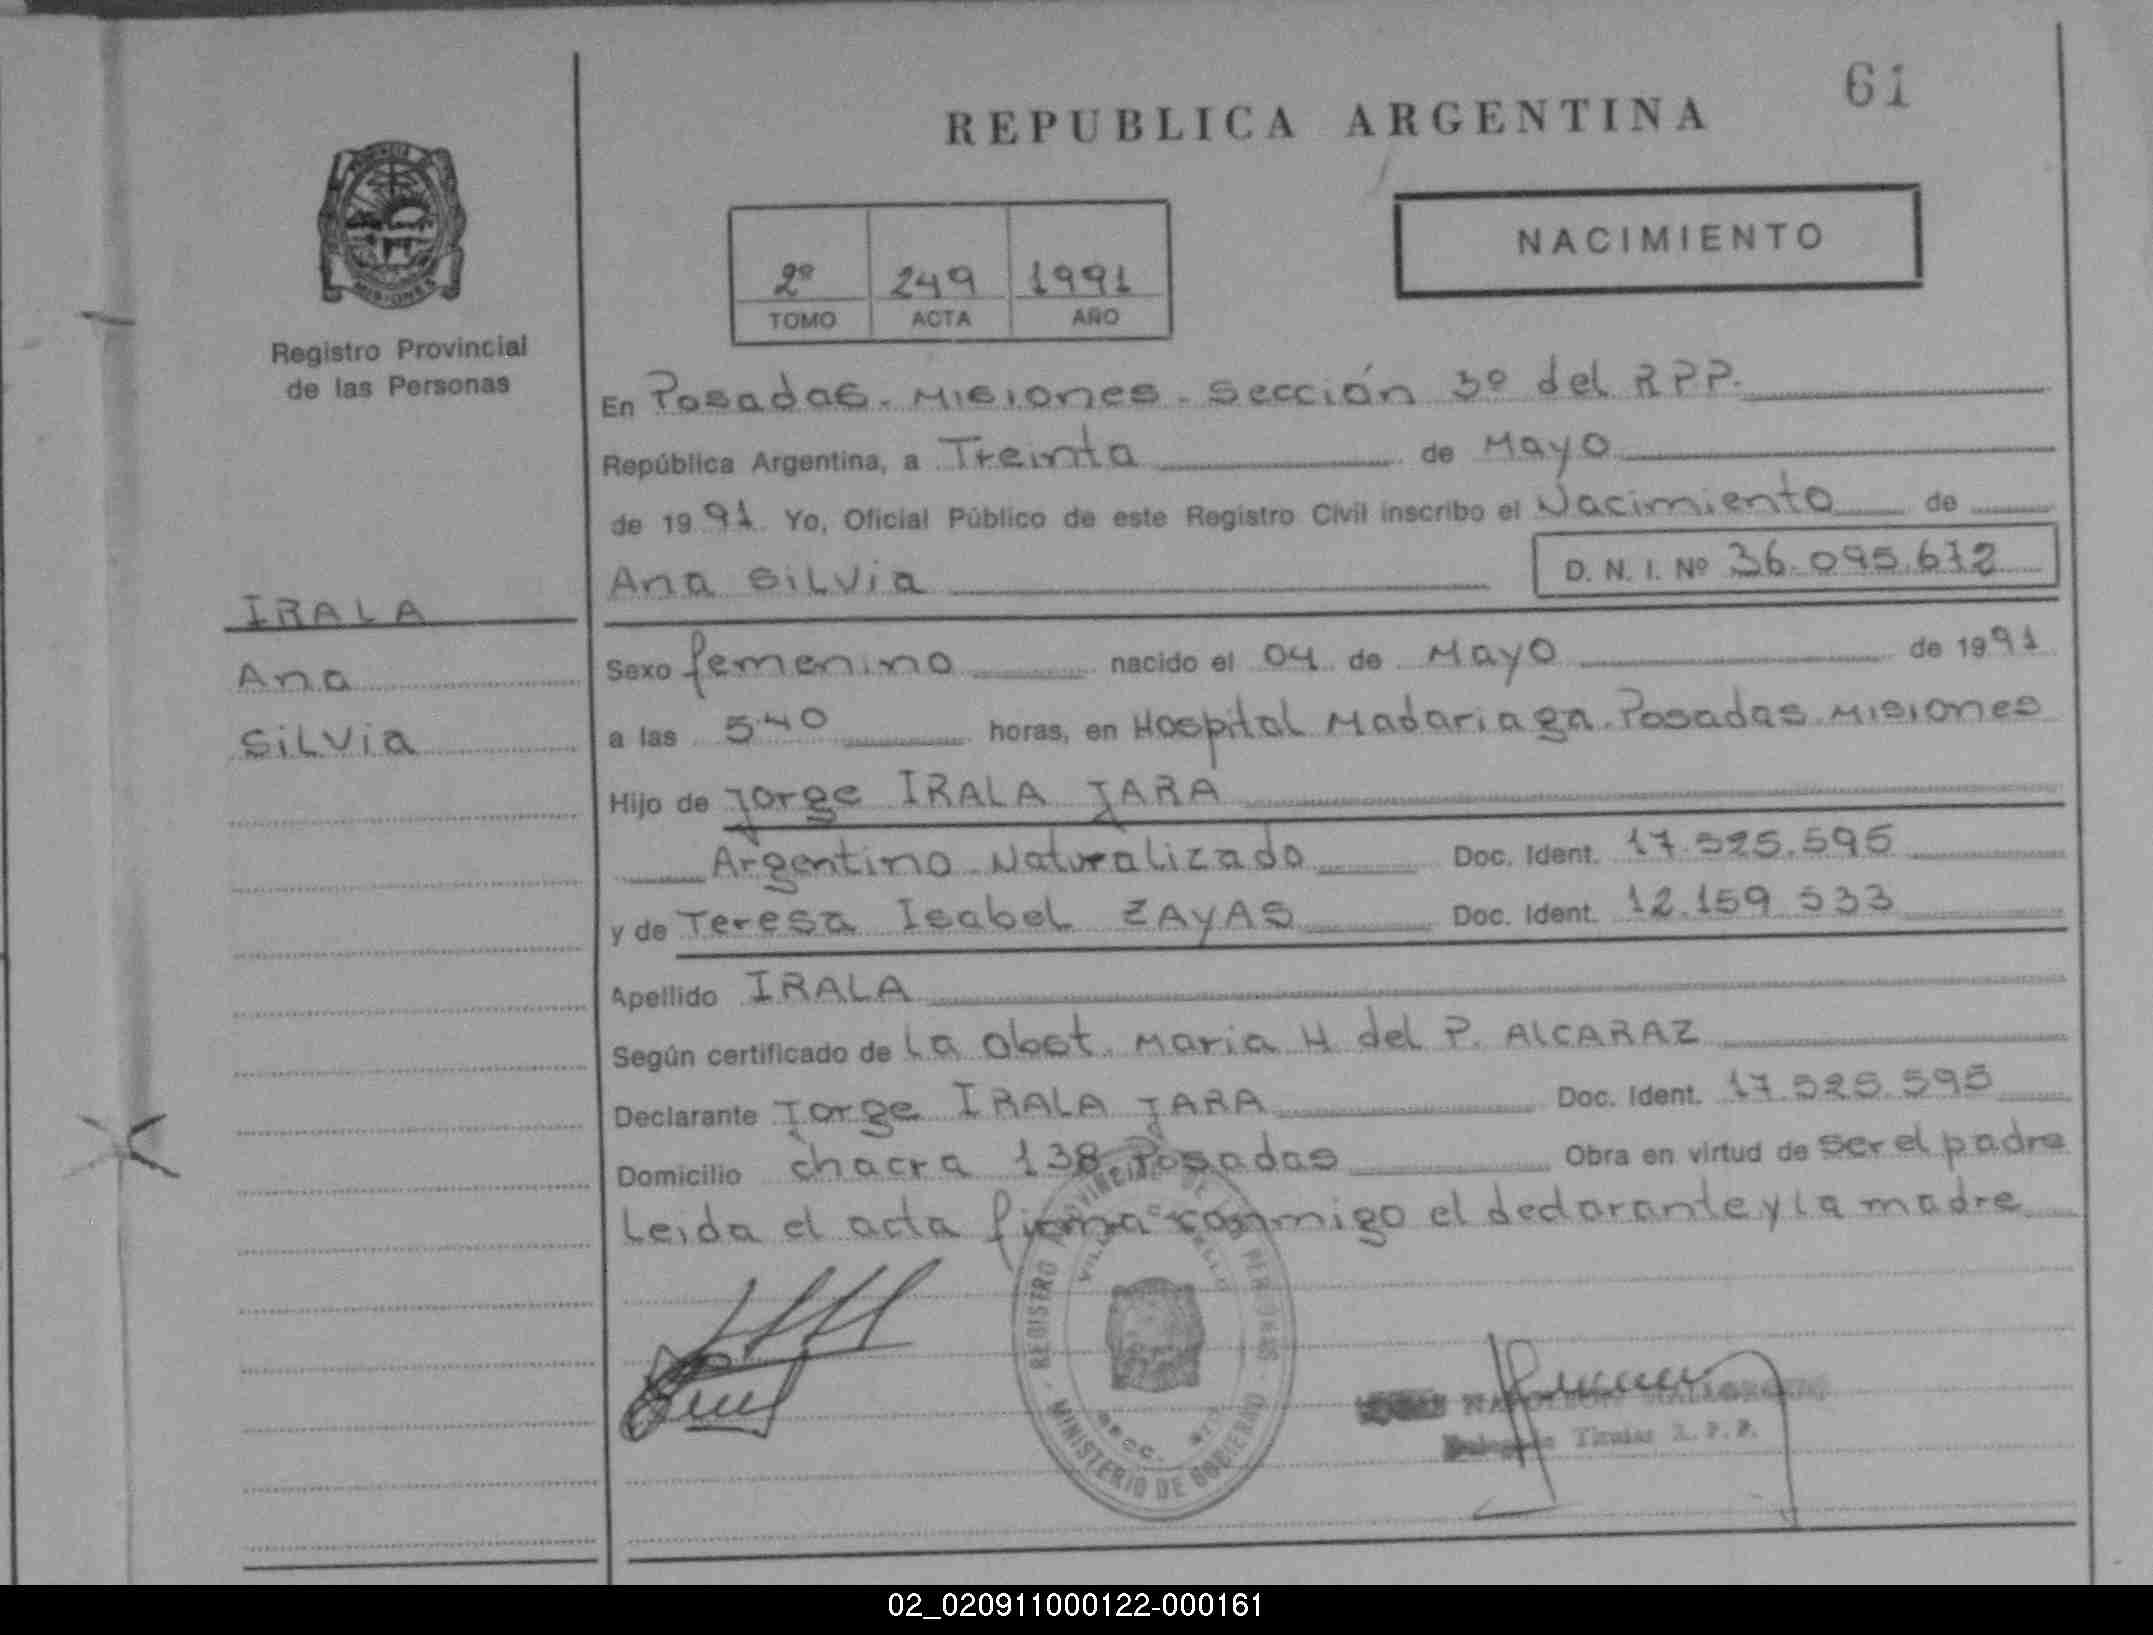 61
REPUBLICA ARGENTINA
NACIMIENTO
2º 249 1991
TOMO ACTA AÑO
MISIONES
Registro Provincial
de las Personas
IRALA
Ana
Silvia
En Posadas. Misiones. Sección 3º del RPP.
República Argentina, a Treinta de Mayo
de 1991 Yo, Oficial Público de este Registro Civil inscribo el Nacimiento de
Ana Silvia D. N. I. Nº 36.095.672
Sexo femenino nacido el 04 de Mayo de 1991
a las 5 40 horas, en Hospital Madariaga. Posadas. Misiones
Hijo de Jorge IRALA JARA
Argentino Naturalizado Doc. Ident. 17.525.595
y de Teresa Isabel ZAYAS Doc. Ident. 12.159.533
Apellido IRALA
Según certificado de la Obst. Maria H del P. ALCARAZ
Declarante Jorge IRALA JARA Doc. Ident. 17.525.595
Domicilio chacra 138 Posadas Obra en virtud de ser el padre
Leida el acta firma conmigo el declarante y la madre
REGISTRO PROVINCIAL DE LAS PERSONAS
MINISTERIO DE GOBIERNO
NAPOLEON
Titular R. P. P.
02_020911000122-000161